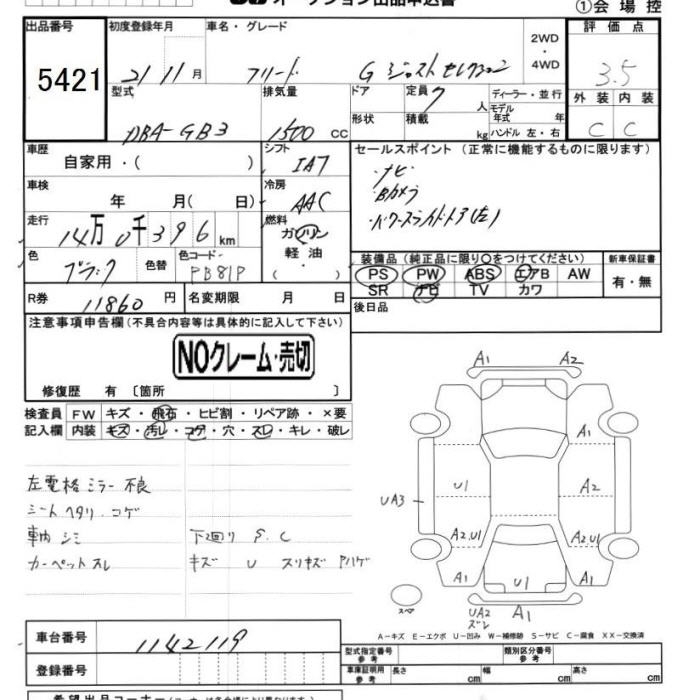 オークション出品申込書
①会場控
出品番号
5421
初度登録年月
21 11 月
車名・グレード
フリード G ジャストセレクション
2WD
・
4WD
評価点
3.5
外装 内装
C C
型式
DBA-GB3
排気量
1500 CC
ドア
形状
定員 7 人
積載 kg
ディーラー・並行
モデル
年式 年
ハンドル 左・右
車歴
自家用・( )
シフト
IA7
セールスポイント (正常に機能するものに限ります)
・ナビ
・Bカメラ
・パワースライドドア(左)
車検
年 月( 日)
冷房
AAC
走行
14万0千396 km
燃料
ガソリン
・
軽油
( ・ )
色
ブラック
色替
色コード
PB81P
装備品 (純正品に限り〇をつけてください)
PS PW ABS エアB AW
SR ナビ TV カワ
新車保証書
有・無
R券
11860 円
名変期限 月 日
後日品
注意事項申告欄 (不具合内容等は具体的に記入して下さい)
NOクレーム・売切
修復歴 有 〔箇所 〕
検査員
記入欄
FW キズ・飛石・ヒビ割・リペア跡・×要
内装 キズ・汚レ・コゲ・穴・スレ・キレ・破レ
左電格ミラー不良
シートヘタリ コゲ
車内シミ
カーペットスレ
下廻り S. C
キズ U スリキズ Pハゲ
A1 A2
A1
U1 A2
UA3
A2.U1 A2.U1
A1 U1 A1
スペア
UA2
ズレ
A1
A-キズ E-エクボ U-凹み W-補修跡 S-サビ C-腐食 XX-交換済
車台番号
1142119
登録番号
型式指定番号
参考
類別区分番号
参考
車庫証明用
参考
長さ cm 幅 cm 高さ cm
希望出品コーナー